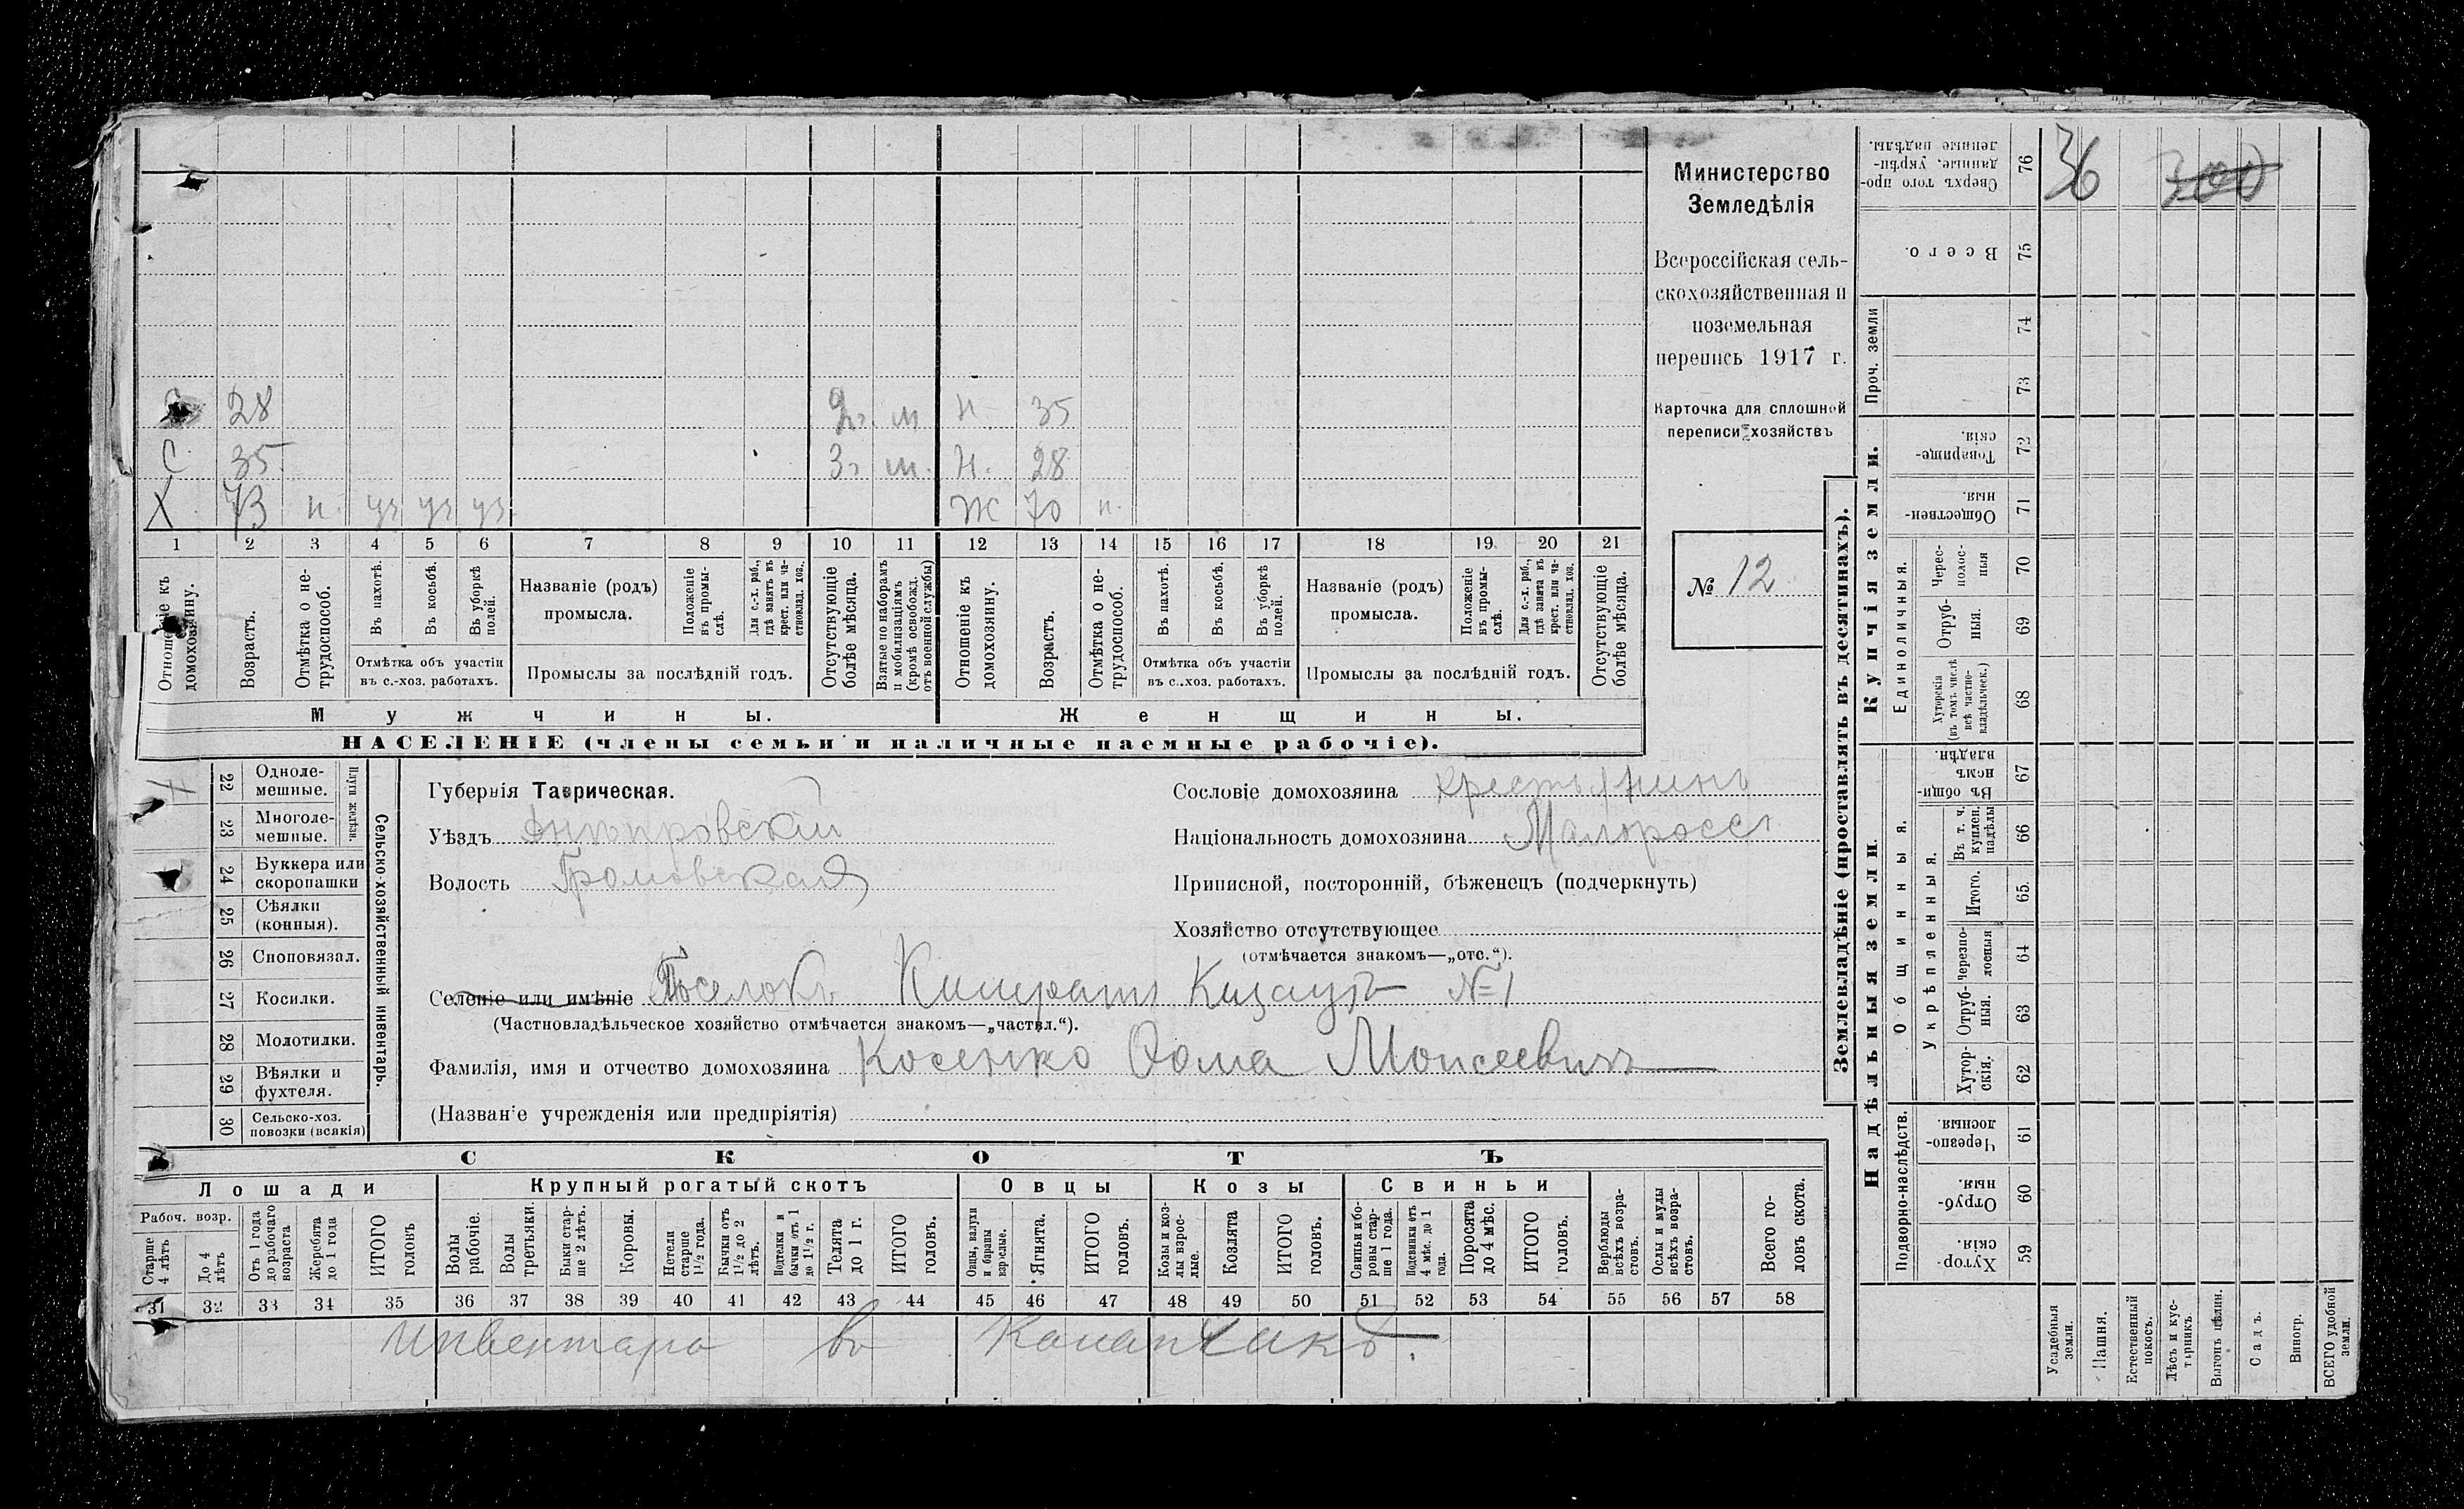 28 2г. м Н. 35
С 35 3г м. Н. 28
Х 73 н. уч уч уч Ж 70 н.
1 2 3 4 5 6 7 8 9 10 11 12 13 14 15 16 17 18 19 20 21
Отношеніе къ домохозяину.
Возрастъ.
Отмѣтка о не-
трудоспособ.
Въ пахотѣ.
Въ косьбѣ.
Въ уборкѣ полей.
Отмѣтка объ участіи
въ с.-хоз. работахъ.
Названіе (родъ)
промысла.
Положеніе въ промы-
слѣ.
Для с.-х. раб., гдѣ занятъ въ крест. или ча-
стновлад. хоз.
Промыслы за послѣдній годъ.
Отсутствующіе болѣе мѣсяца.
Взятые по наборамъ и мобилизаціямъ (кромѣ освобожд. отъ военной службы)
Отношеніе къ домохозяину.
Возрастъ.
Отмѣтка о не-
трудоспособ.
Въ пахотѣ.
Въ косьбѣ.
Въ уборкѣ полей.
Отмѣтка объ участіи
въ с.-хоз. работахъ.
Названіе (родъ)
промысла.
Положеніе въ промы-
слѣ.
Для с.-х. раб., гдѣ занята въ крест. или ча-
стновлад. хоз.
Промыслы за послѣдній годъ.
Отсутствующіе болѣе мѣсяца.
Мужчины.
Женщины.
НАСЕЛЕНІЕ (члены семьи и наличные наемные рабочіе).
Министерство
Земледѣлія
Всероссійская сель-
скохозяйственная и
поземельная
перепись 1917 г.
Карточка для сплошной
переписи хозяйствъ
№ 12
22 Одноле-
мешные.
23 Многоле-
мешные.
Плуги желѣзн.
24 Буккера или
скоропашки
25 Сѣялки
(конныя).
26 Сноповязал.
27 Косилки.
28 Молотилки.
29 Вѣялки и
фухтеля.
30 Сельско-хоз.
повозки (всякія)
Сельско-хозяйственный инвентарь.
Губернія Таврическая.
Уѣздъ Днѣпровскій
Волость Громовская
Сословіе домохозяина крестьянинъ
Національность домохозяина Малороссъ
Приписной, посторонній, бѣженецъ (подчеркнуть)
Хозяйство отсутствующее
(отмѣчается знакомъ—„отс.“).
Селеніе или имѣніе Поселокъ №1
(Частновладѣльческое хозяйство отмѣчается знакомъ—„частвл.“).
Фамилія, имя и отчество домохозяина Косенко Фома Моисеевичъ
(Названіе учрежденія или предпріятія)
СКОТЪ
Лошади
Крупный рогатый скотъ
Овцы
Козы
Свиньи
Рабоч. возр.
Старше 4 лѣтъ
До 4 лѣтъ
Отъ 1 года до рабочаго возраста
Жеребята до 1 года
ИТОГО головъ
Волы рабочіе.
Волы третьяки.
Быки стар-
ше 2 лѣтъ.
Коровы.
Нетели старше 1½ года.
Бычки отъ 1½ до 2 лѣтъ.
Подтелки и бычки отъ 1 до 1½ г.
Телята до 1 г.
ИТОГО головъ.
Овцы, валухи и бараны взрослые.
Ягнята.
ИТОГО головъ.
Козы и коз-
лы взрос-
лые.
Козлята
ИТОГО головъ.
Свиньи и бо-
ровы стар-
ше 1 года.
Подсвинки отъ 4 мѣс. до 1 года.
Поросята до 4 мѣс.
ИТОГО головъ.
Верблюды всѣхъ возра-
стовъ.
Ослы и мулы всѣхъ возра-
стовъ.
Всего го-
ловъ скота.
31 32 33 34 35 36 37 38 39 40 41 42 43 44 45 46 47 48 49 50 51 52 53 54 55 56 57 58
Инвентарь въ
Землевладѣніе (проставлять въ десятинахъ).
Купчія земли.
Надѣльныя земли.
36 300
Сверхъ того про-
данные, укрѣп-
ленные надѣлы. 76
Всего. 75
Проч. земли
74
73
Товарище-
скія. 72
Обществен-
ныя. 71
Единоличныя.
Черес-
полос-
ныя 70
Отруб-
ныя. 69
Хуторскія (въ томъ числѣ всѣ частно-
владѣльческ.) 68
Въ общи-
номъ владѣн. 67
Общинныя.
Укрѣпленныя.
Въ т. ч. куплен. надѣлы 66
Итого. 65.
Черезпо-
лосныя 64
Отруб-
ныя. 63
Хутор-
скія. 62
Подворно-наслѣдств.
Черезпо-
лосныя. 61
Отруб-
ныя. 60
Хутор-
скія. 59
Усадебныя земли.
Пашня.
Естественный покосъ.
Лѣсъ и кус-
тарникъ.
Выгонъ цѣлин.
Садъ.
Виногр.
ВСЕГО удобной земли.